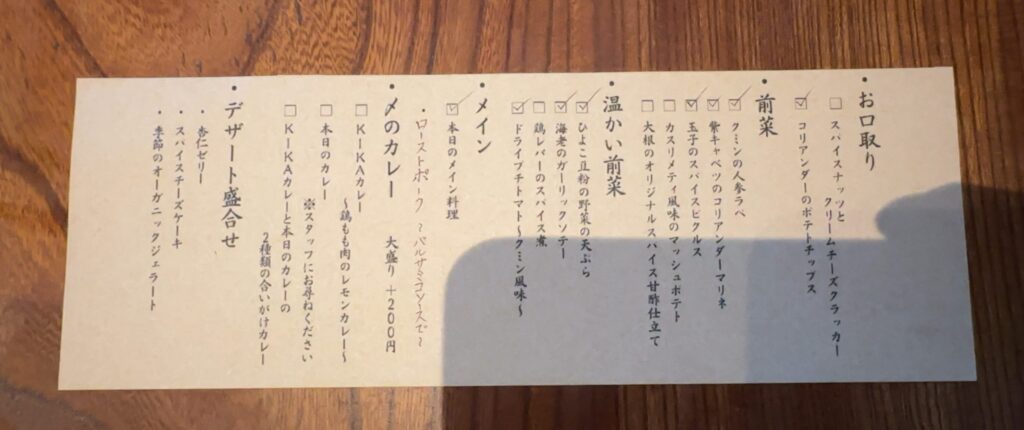 ・お口取り
□ スパイスナッツと
クリームチーズクラッカー
☑ コリアンダーのポテトチップス
・前菜
☑ クミンの人参ラペ
☑ 紫キャベツのコリアンダーマリネ
☑ 玉子のスパイスピクルス
□ カスリメティ風味のマッシュポテト
□ 大根のオリジナルスパイス甘酢仕立て
・温かい前菜
☑ ひよこ豆粉の野菜の天ぷら
☑ 海老のガーリックソテー
□ 鶏レバーのスパイス煮
☑ ドライプチトマト〜クミン風味〜
・メイン
☑ 本日のメイン料理
・ローストポーク 〜バルサミコソースで〜
・〆のカレー 大盛り+200円
□ KIKAカレー
〜鶏もも肉のレモンカレー〜
□ 本日のカレー
※スタッフにお尋ねください
□ KIKAカレーと本日のカレーの
2種類の合いがけカレー
・デザート盛合せ
・杏仁ゼリー
・スパイスチーズケーキ
・季節のオーガニックジェラート